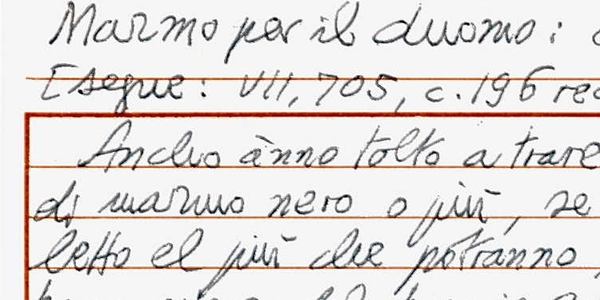 Marmo per il duomo:
[segue: VII, 705, c. 196
AnchO ànno tolto a trare
di marmo nero o più, se
letto el più che potranno,